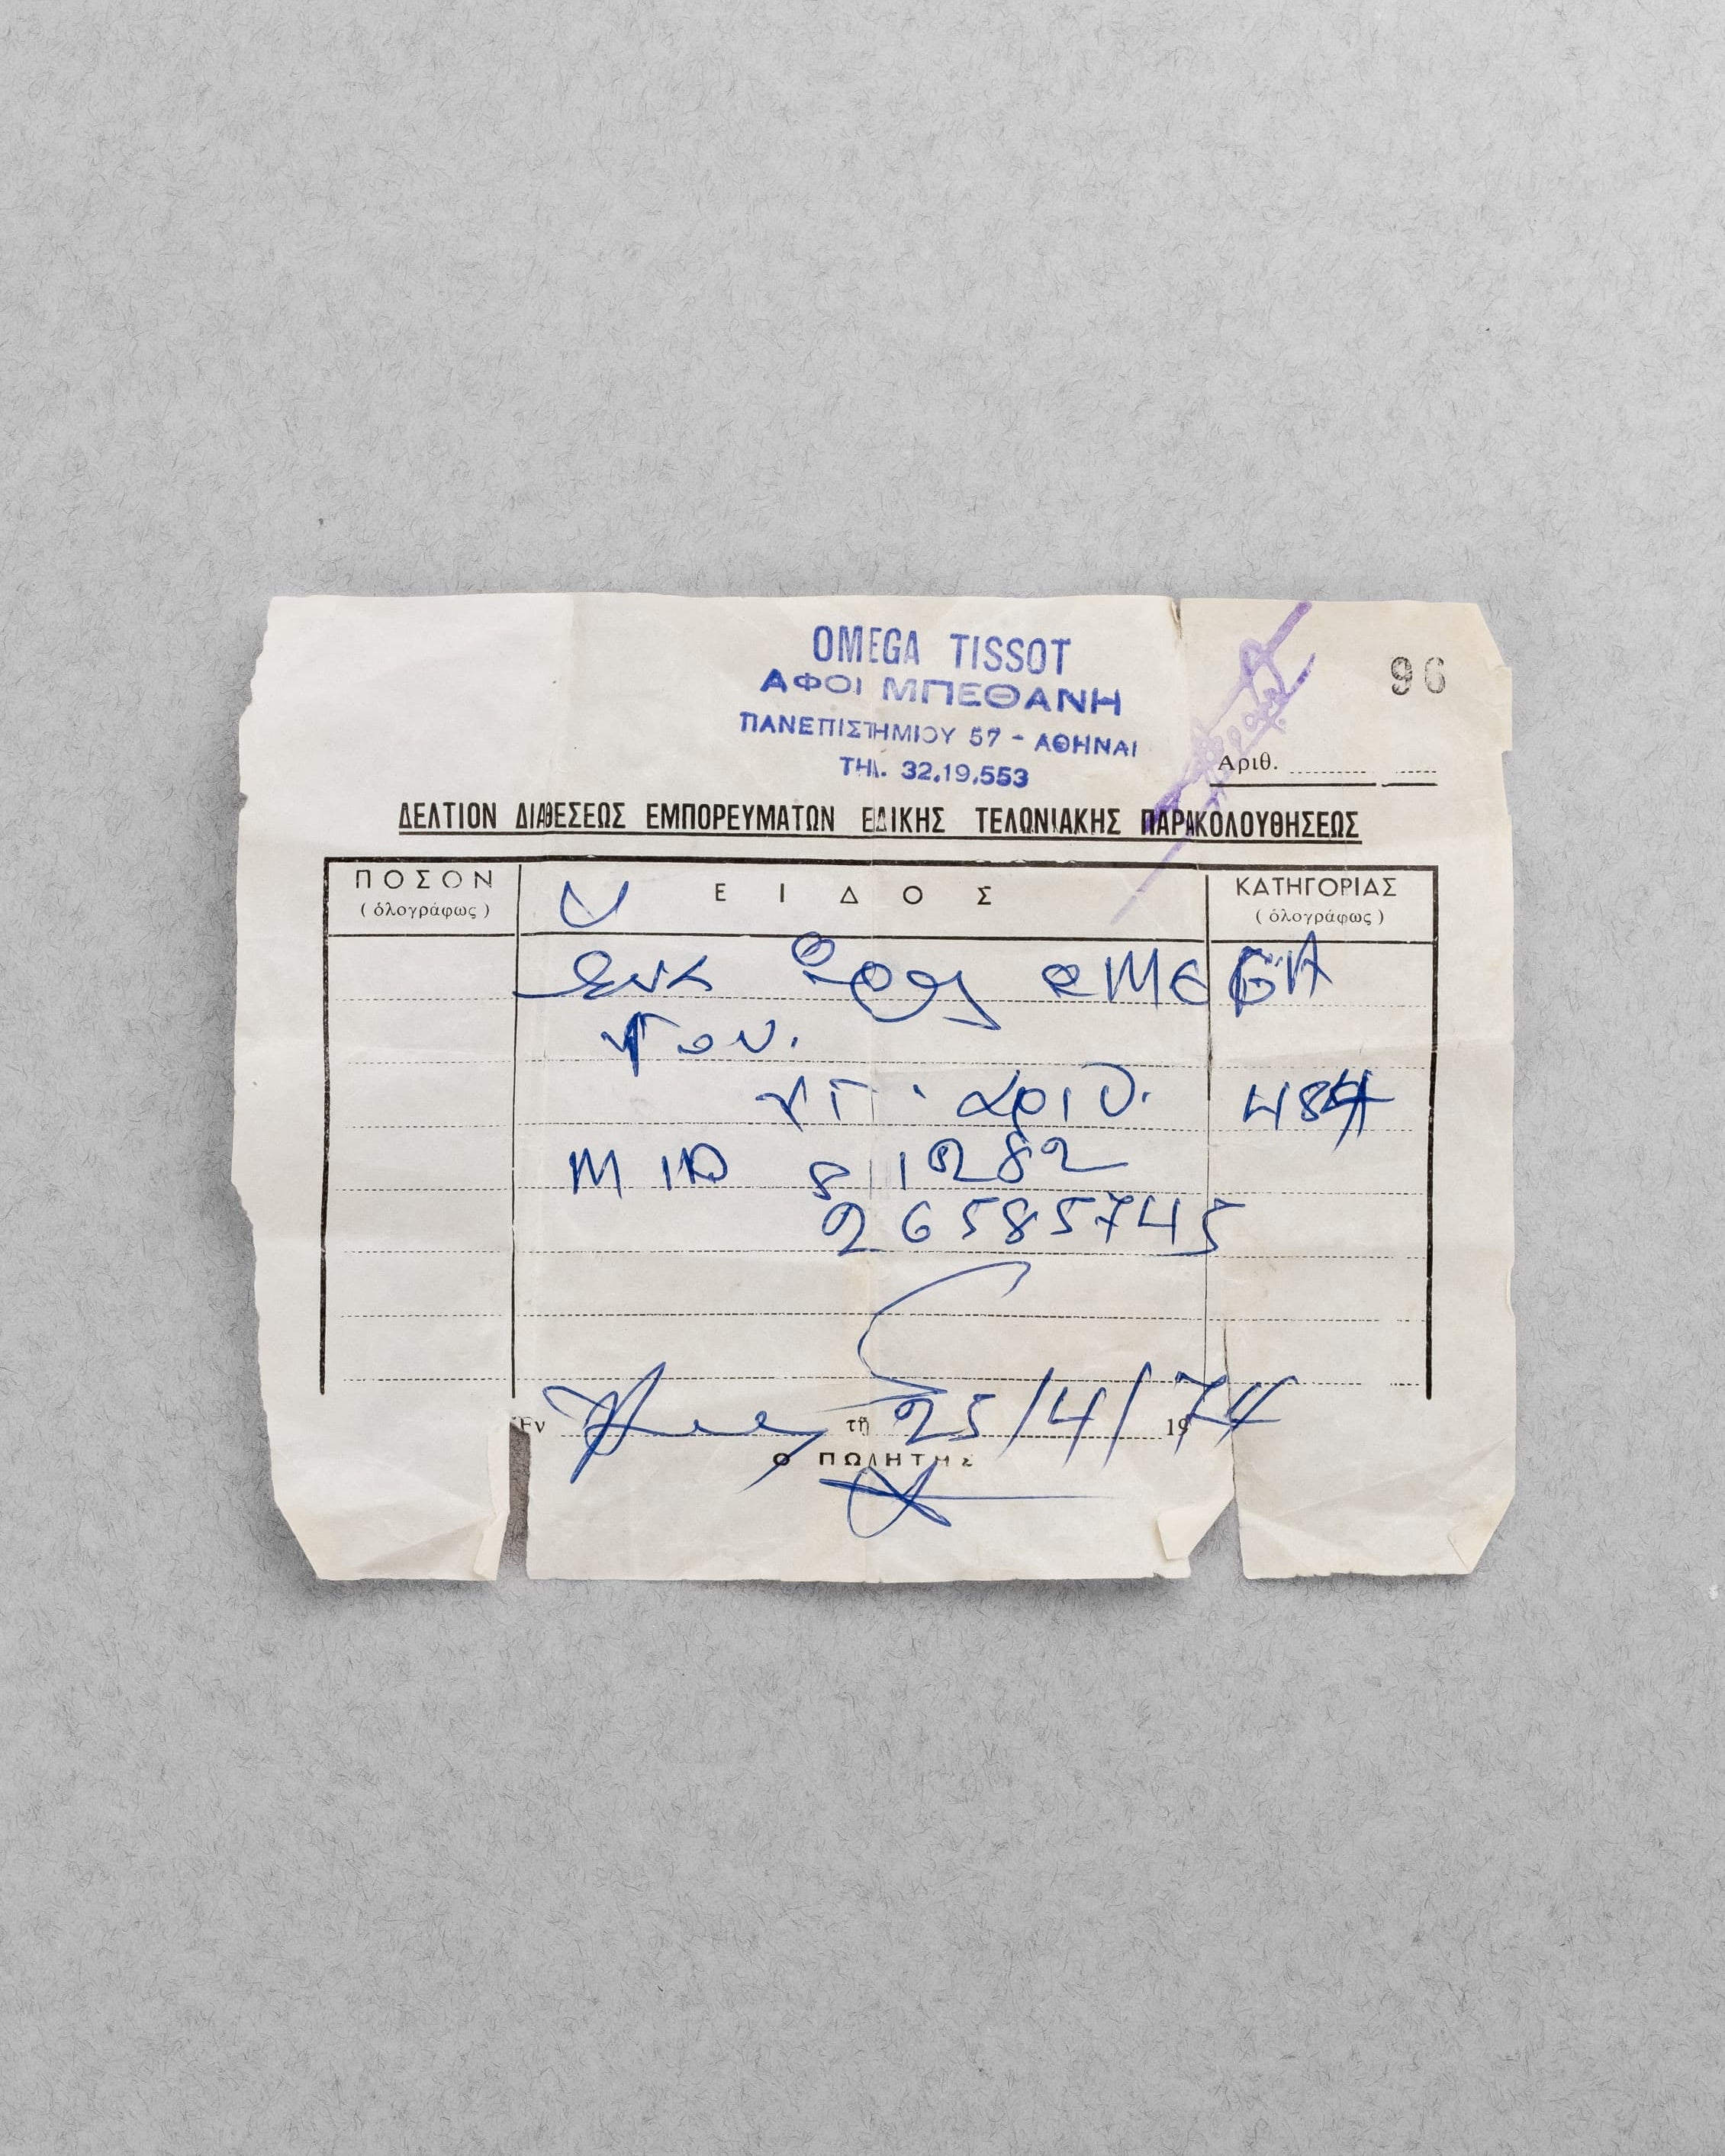 OMEGA TISSOT
ΑΦΟΙ ΜΠΕΘΑΝΗ
ΠΑΝΕΠΙΣΤΗΜΙΟΥ 57 - ΑΘΗΝΑΙ
ΤΗΛ. 32.19.553
96
Αριθ.
ΔΕΛΤΙΟΝ ΔΙΑΘΕΣΕΩΣ ΕΜΠΟΡΕΥΜΑΤΩΝ ΕΔΙΚΗΣ ΤΕΛΩΝΙΑΚΗΣ ΠΑΡΑΚΟΛΟΥΘΗΣΕΩΣ
ΠΟΣΟΝ
(ὁλογράφως)
ΕΙΔΟΣ
ΚΑΤΗΓΟΡΙΑΣ
(ὁλογράφως)
ΩΜΕGΑ
αριθ. 484
811282
26585745
Ἐν τῇ 25/4/1974
Ο ΠΩΛΗΤΗΣ